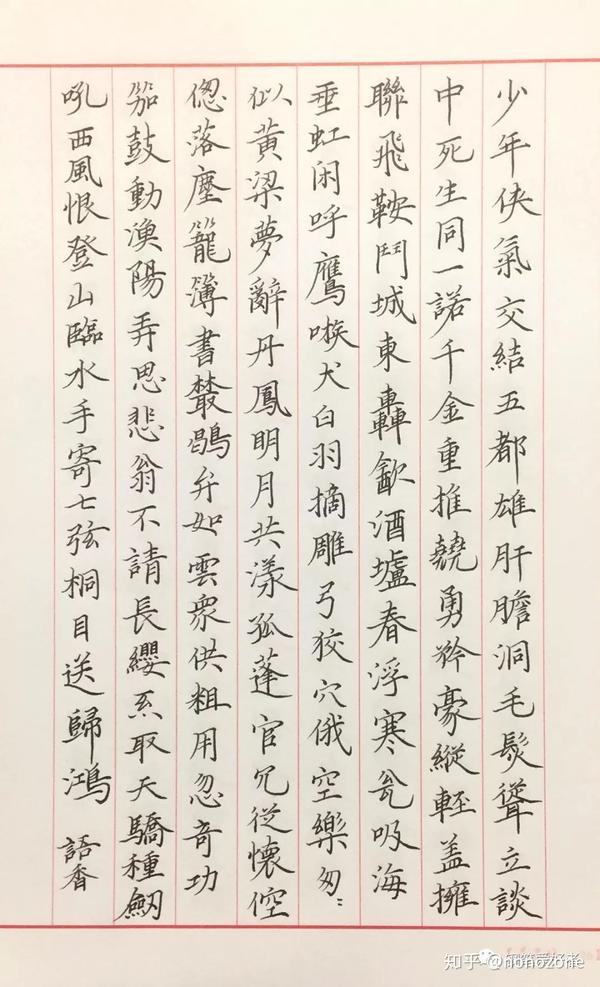 少年侠氣交結五都雄肝膽洞毛髮聳立談
中死生同一諾千金重推翹勇矜豪縱輕盖擁
聯飛鞍鬥城東轟飲酒壚春浮寒瓮吸海
垂虹闲呼鷹嗾犬白羽摘雕弓狡穴俄空樂匆〻
似黃梁夢辭丹鳳明月共漾孤蓬官冗從懷倥
偬落塵籠簿書叢鶡弁如雲衆供粗用忽奇功
笳鼓動漁陽弄思悲翁不請長纓系取天驕種劒
吼西風恨登山臨水手寄七弦桐目送歸鴻 語香
知乎 @nonozone